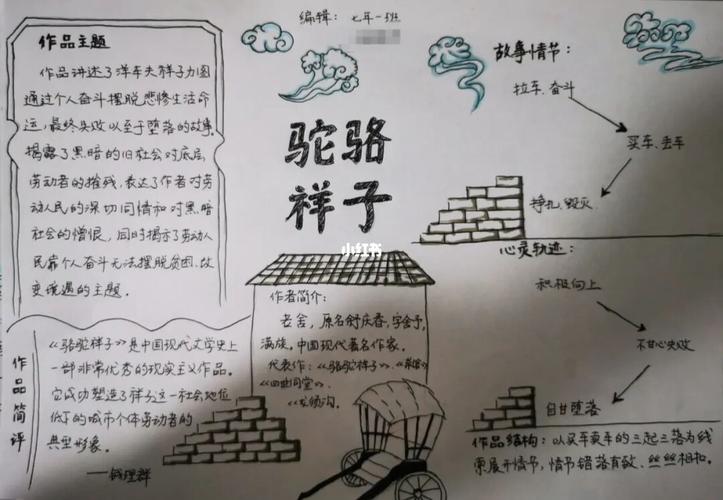 编辑：七年一班
作品主题
作品讲述了洋车夫祥子力图
通过个人奋斗摆脱悲惨生活命
运，最终失败以至于堕落的故事，
揭露了黑暗的旧社会对底层
劳动者的摧残，表达了作者对劳
动人民的深切同情和对黑暗
社会的憎恨，同时揭示了劳动人
民靠个人奋斗无法摆脱贫困、改
变境遇的主题。
驼骆
祥子
小红书
作者简介：
老舍，原名舒庆春，字舍予，
满族，中国现代著名作家。
代表作：《骆驼祥子》、《茶馆》
《四世同堂》、
《龙须沟》
作品简评
《骆驼祥子》是中国现代文学史上
一部非常优秀的现实主义作品。
它成功塑造了祥子这一社会地位
低下的城市个体劳动者的
典型形象。
——钱理群
故事情节：
拉车、奋斗
买车、丢车
挣扎、毁灭
心灵轨迹：
积极向上
不甘心失败
自甘堕落
作品结构：以买车卖车的三起三落为线
索展开情节，情节错落有致、丝丝相扣。